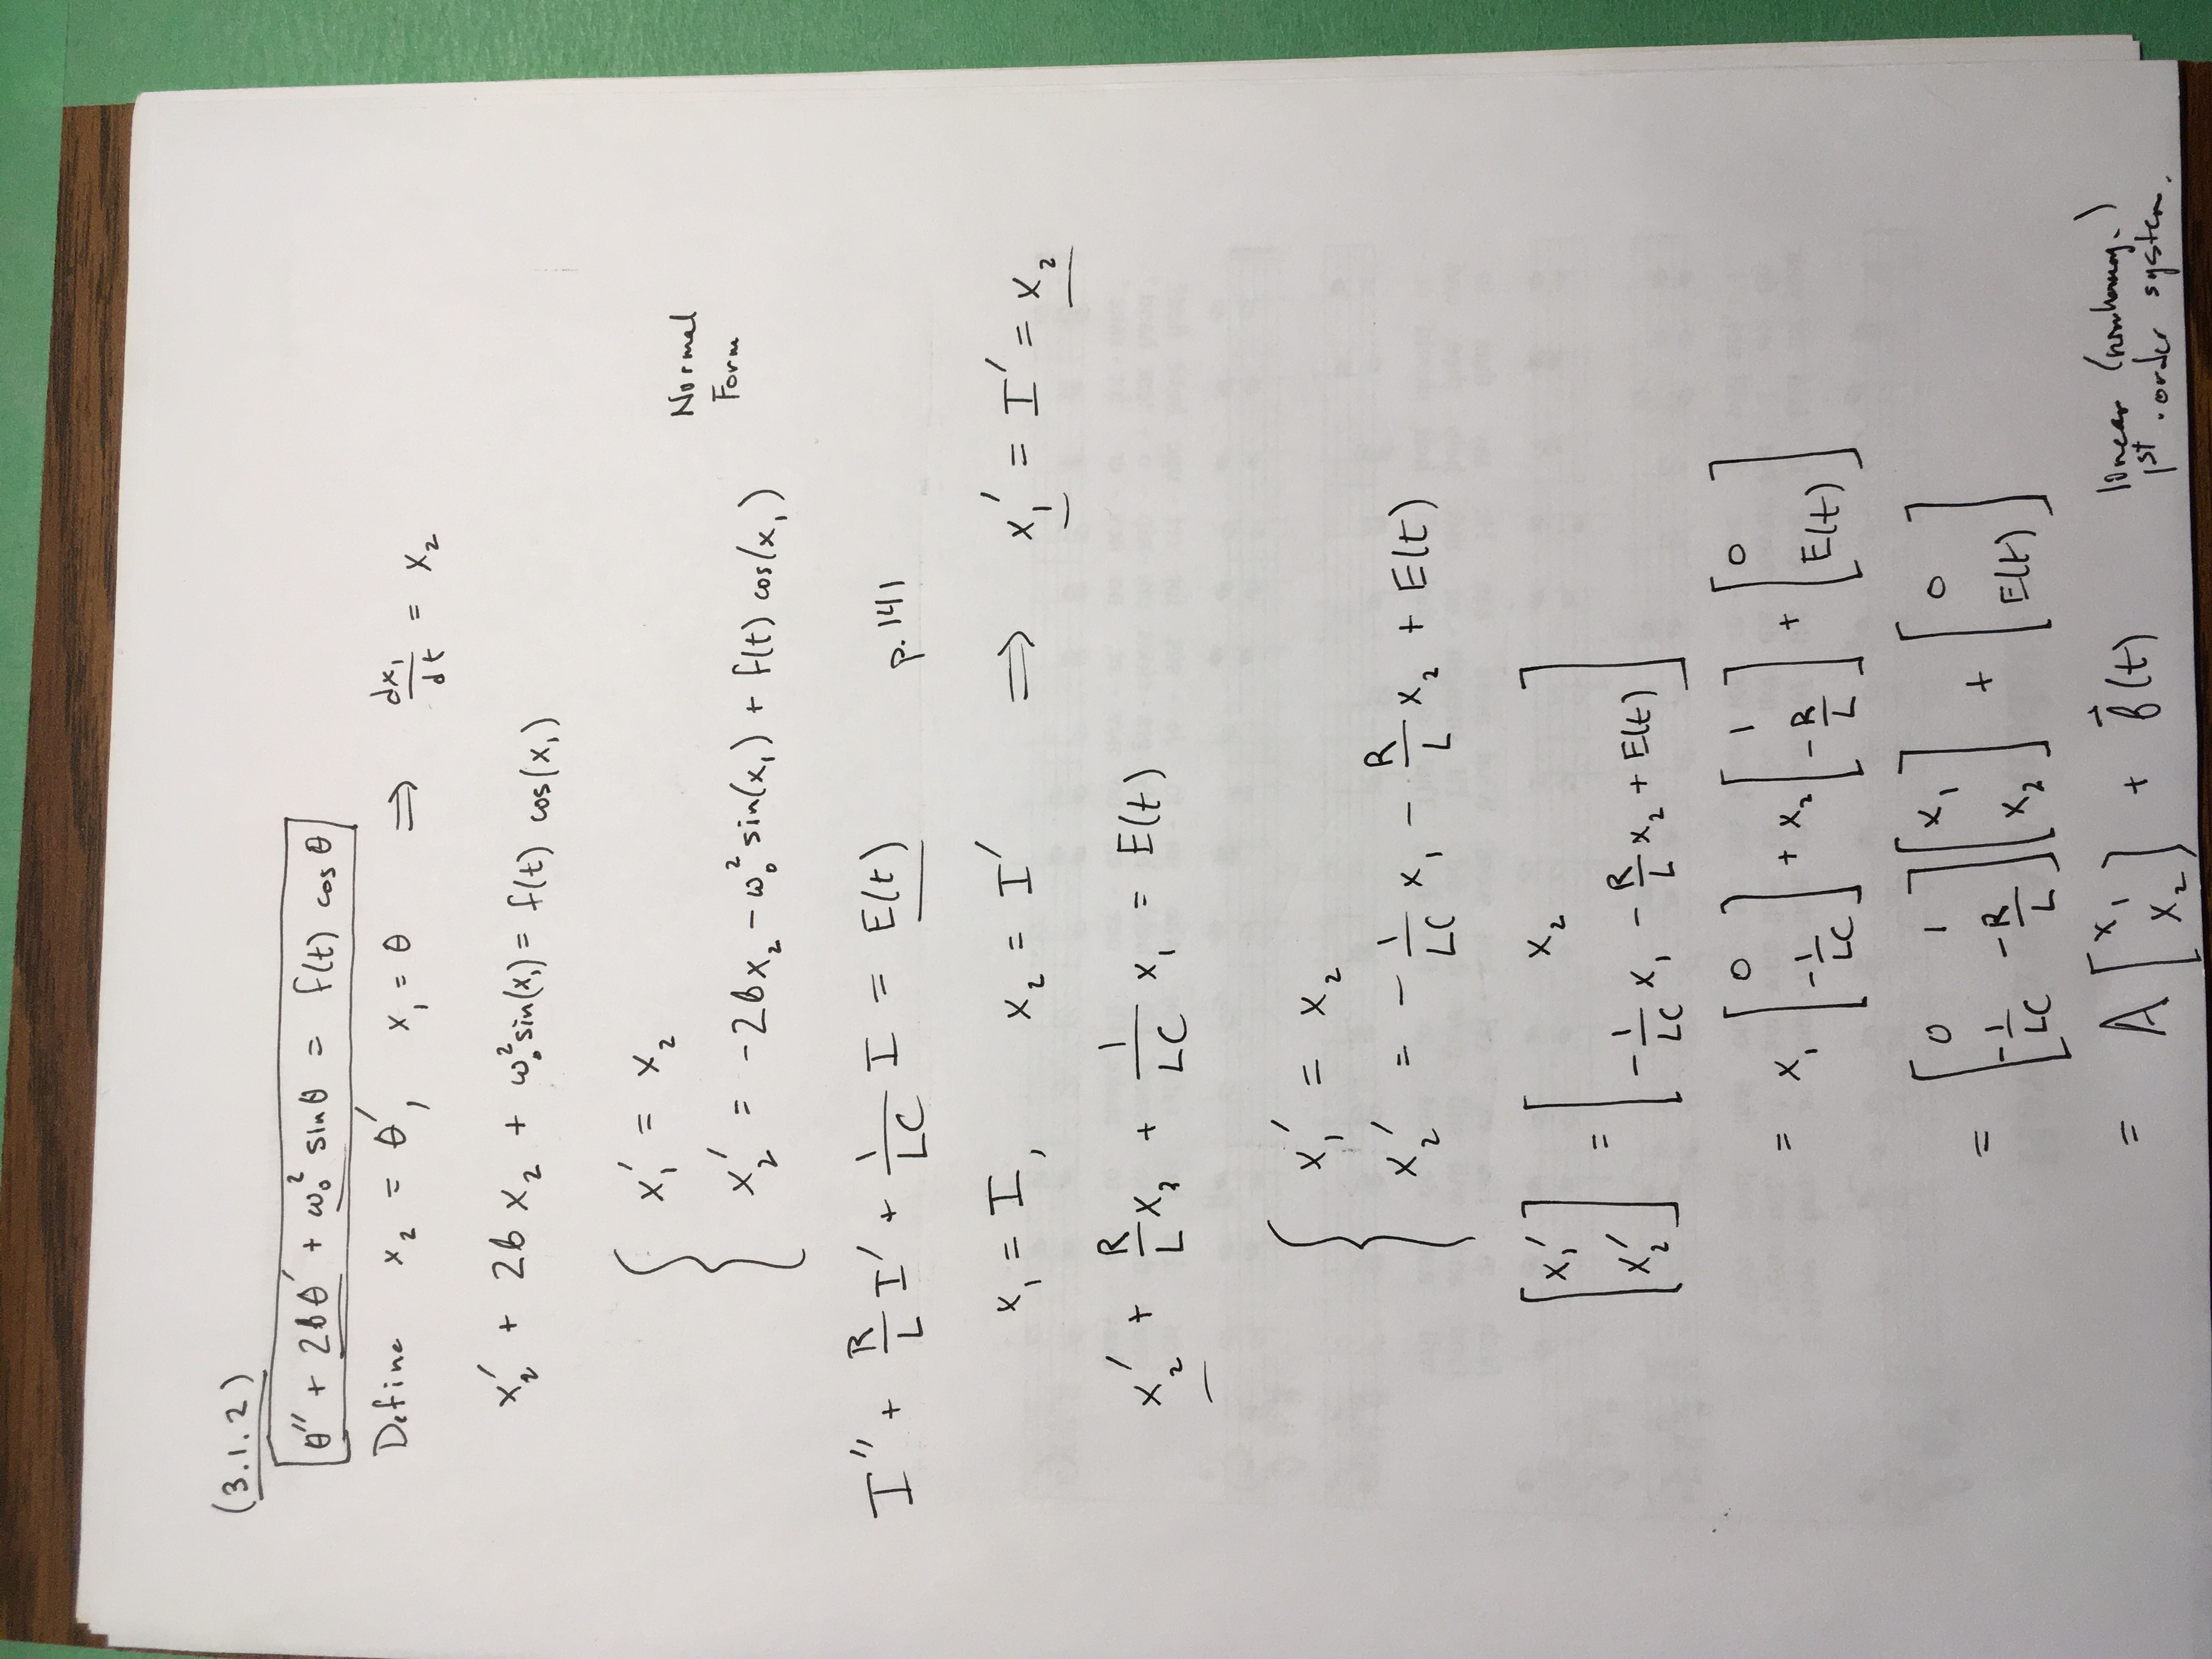 (3.1.2)
θ'' + 2bθ' + ω₀² sinθ = f(t) cos θ
Define x₂ = θ', x₁ = θ ⟹ dx₁/dt = x₂
x₂' + 2b x₂ + ω₀² sin(x₁) = f(t) cos(x₁)
x₁' = x₂
Normal
Form
x₂' = -2bx₂ - ω₀² sin(x₁) + f(t) cos(x₁)
I'' + R/L I' + 1/LC I = E(t) p.141
x₁ = I, x₂ = I' ⟹ x₁' = I' = x₂
x₂' + R/L x₂ + 1/LC x₁ = E(t)
x₁' = x₂
x₂' = - 1/LC x₁ - R/L x₂ + E(t)
[x₁' ; x₂'] = [x₂ ; -1/LC x₁ - R/L x₂ + E(t)]
= x₁ [0 ; -1/LC] + x₂ [1 ; -R/L] + [0 ; E(t)]
= [0 1 ; -1/LC -R/L] [x₁ ; x₂] + [0 ; E(t)]
= A [x₁ ; x₂] + b⃗(t)
linear (nonhomog.)
1st-order system.